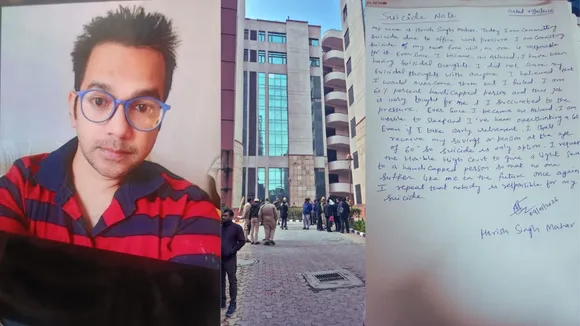 Suicide Note
My name is Harish Singh Mahar. Today I am Committing
Suicide due to office work pressure I am Committing
Suicide of my own free will, no one is responsible
for it. Ever since I became an Ahlmad I have been
having Suicidal thoughts I did not share my
Suicidal thoughts with anyone. I believed that
I would overcome them but I failed I am
60% percent handicapped person and this job
is very tought for me & I succumbed to the
pressure. Ever since I became an Ahlmad I am
unable to sleep and I've been overthinking a lot
Even if I take early retirement I shall
receive my savings or pension at the age
of 60 so suicide is only option. I request
the Hon'ble High Court to give a light seat
to a handicapped person so that no one
suffer like me in the future once again
I repeat that nobody is responsible for my
suicide.
Harish Singh Mahar